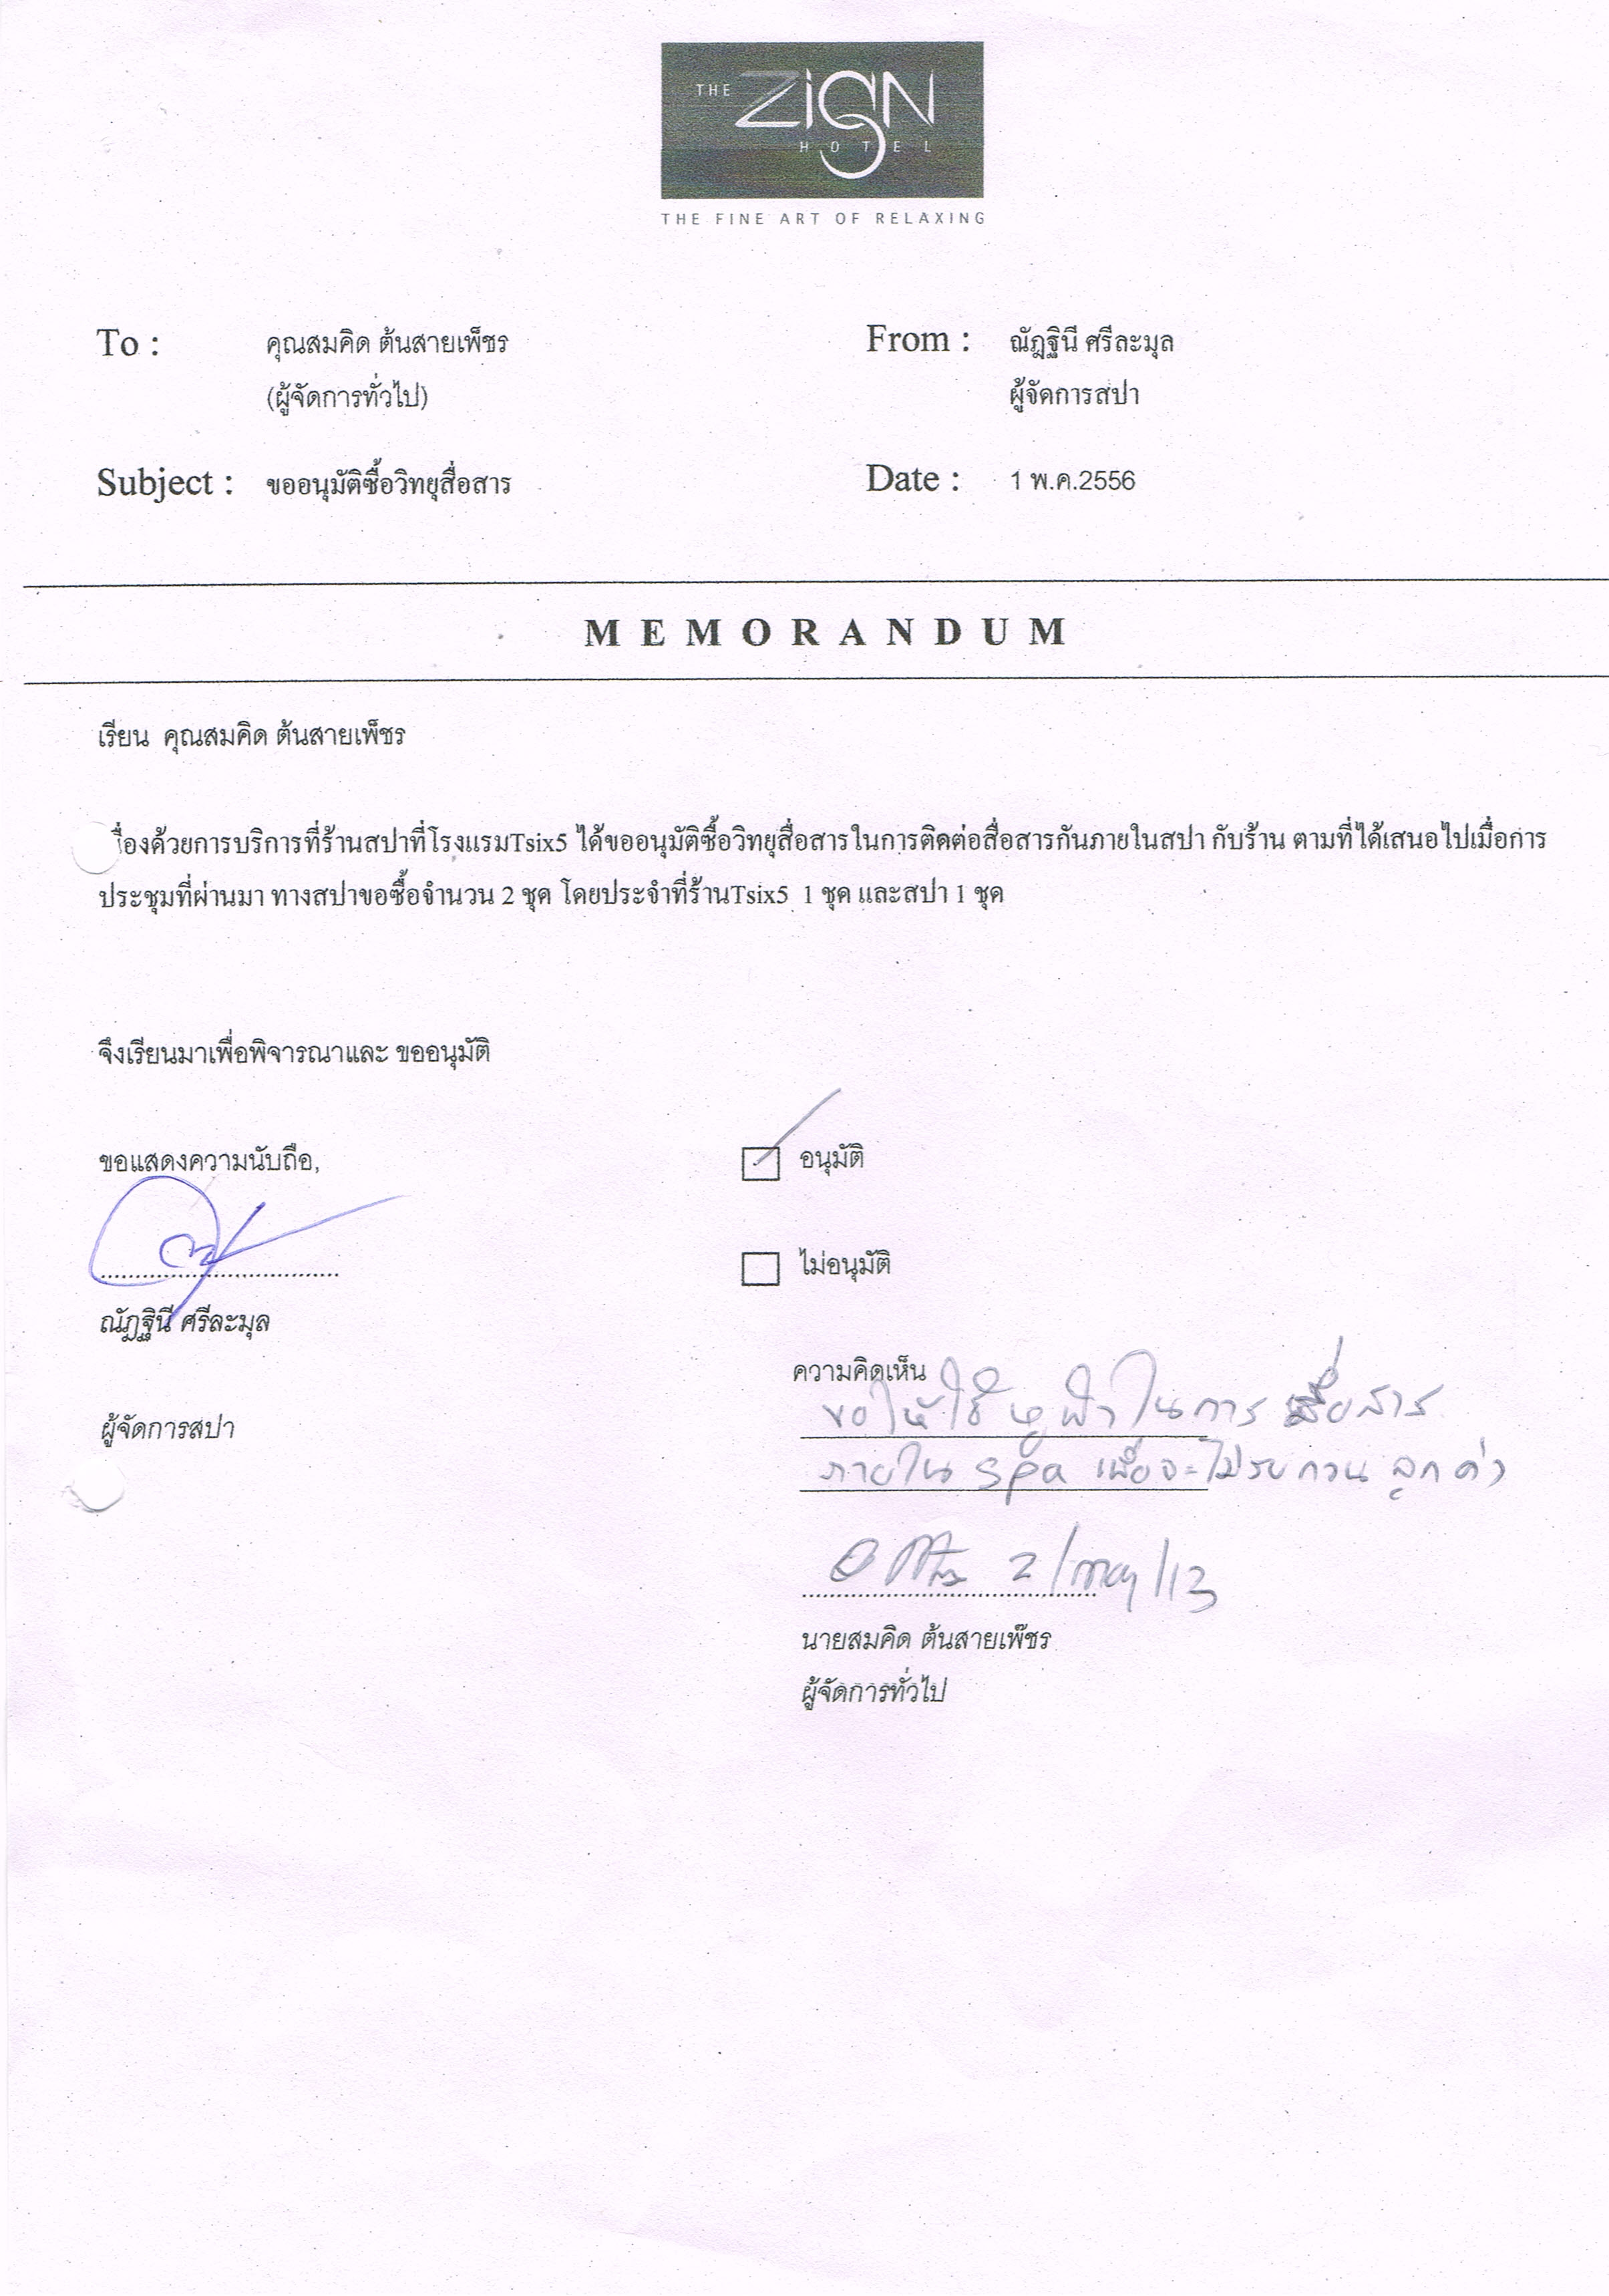 THE ZIGN
HOTEL
THE FINE ART OF RELAXING
To : คุณสมคิด ต้นสายเพ็ชร From : ณัฎฐินี ศรีละมุล
(ผู้จัดการทั่วไป) ผู้จัดการสปา
Subject : ขออนุมัติซื้อวิทยุสื่อสาร Date : 1 พ.ค.2556
MEMORANDUM
เรียน คุณสมคิด ต้นสายเพ็ชร
องด้วยการบริการที่ร้านสปาที่โรงแรมTsix5 ได้ขออนุมัติซื้อวิทยุสื่อสารในการติดต่อสื่อสารกันภายในสปา กับร้าน ตามที่ได้เสนอไปเมื่อการ
ประชุมที่ผ่านมา ทางสปาขอซื้อจำนวน 2 ชุด โดยประจำที่ร้านTsix5 1 ชุด และสปา 1 ชุด
จึงเรียนมาเพื่อพิจารณาและ ขออนุมัติ
ขอแสดงความนับถือ, อนุมัติ
ไม่อนุมัติ
ณัฏฐินี ศรีละมุล
ความคิดเห็น
ขอให้ใช้หูฟังในการ สื่อสาร
ผู้จัดการสปา
ภายใน spa เพื่อจะไม่รบกวน ลูกค้า
2/may/13
นายสมคิด ต้นสายเพ๊ชร
ผู้จัดการทั่วไป